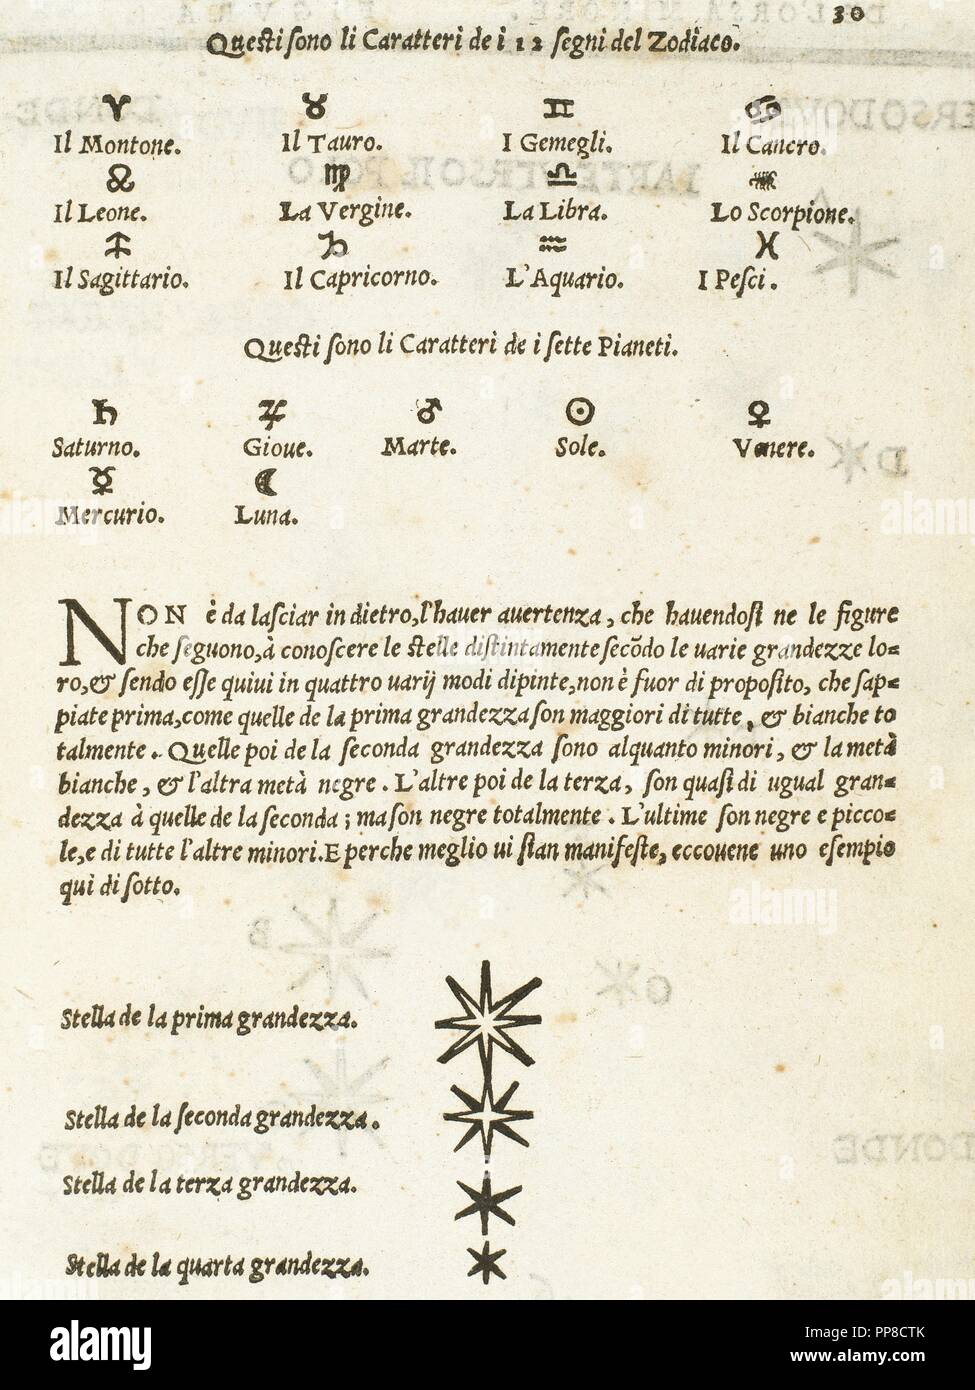 30
Questi sono li Caratteri de i 12 segni del Zodiaco.
♈ ♉ ♊ ♋
Il Montone. Il Tauro. I Gemegli. Il Cancro.
♌ ♍ ♎
Il Leone. La Vergine. La Libra. Lo Scorpione.
♑ ♒ ♓
Il Sagittario. Il Capricorno. L'Aquario. I Pesci.
Questi sono li Caratteri de i sette Pianeti.
♄ ♃ ♂ ☉ ♀
Saturno. Gioue. Marte. Sole. Venere.
☿ ☾
Mercurio. Luna.
NON è da lasciar in dietro, l'hauer auertenza, che hauendosi ne le figure
che seguono, à conoscere le stelle distintamente secōdo le uarie grandezze lo-
ro, & sendo esse quiui in quattro uarij modi dipinte, non è fuor di proposito, che sap-
piate prima, come quelle de la prima grandezza son maggiori di tutte, & bianche to
talmente. Quelle poi de la seconda grandezza sono alquanto minori, & la metà
bianche, & l'altra metà negre. L'altre poi de la terza, son quasi di ugual gran-
dezza à quelle de la seconda; ma son negre totalmente. L'ultime son negre e picco-
le, e di tutte l'altre minori. E perche meglio ui sian manifeste, eccouene uno esempio
quì di sotto.
Stella de la prima grandezza.
Stella de la seconda grandezza.
Stella de la terza grandezza.
Stella de la quarta grandezza.
alamy
Image ID: PP8CTK
www.alamy.com